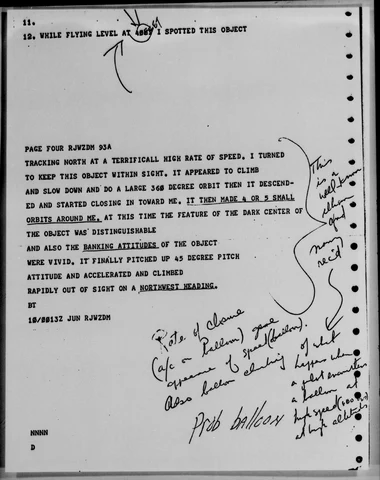 11.
12. WHILE FLYING LEVEL AT I SPOTTED THIS OBJECT
PAGE FOUR RJWZDM 93A
TRACKING NORTH AT A TERRIFICALL HIGH RATE OF SPEED. I TURNED
TO KEEP THIS OBJECT WITHIN SIGHT. IT APPEARED TO CLIMB
AND SLOW DOWN AND DO A LARGE 360 DEGREE ORBIT THEN IT DESCEND-
ED AND STARTED CLOSING IN TOWARD ME. IT THEN MADE 4 OR 5 SMALL
ORBITS AROUND ME. AT THIS TIME THE FEATURE OF THE DARK CENTER OF
THE OBJECT WAS DISTINGUISHABLE
AND ALSO THE BANKING ATTITUDES OF THE OBJECT
WERE VIVID. IT FINALLY PITCHED UP 45 DEGREE PITCH
ATTITUDE AND ACCELERATED AND CLIMBED
RAPIDLY OUT OF SIGHT ON A NORTHWEST HEADING.
BT
10/0013Z JUN RJWZDM
This
is a
well known
many
rec'd
Rate of closure
(a/c on balloon) gave
appearance of speed (balloon).
Also balloon climbing
of what
happens when
a pilot encounters
a balloon at
high speed
at high altitude
Prob balloon
NNNN
D